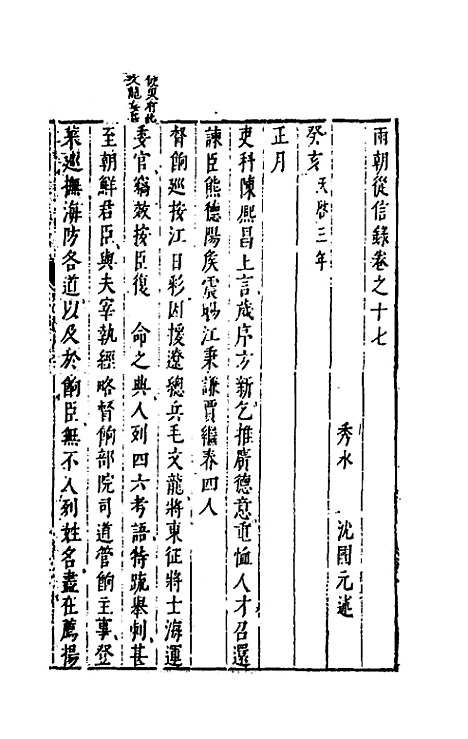 兩朝從信錄卷之十七
秀水 沈國元述
癸亥天啓三年
正月
吏科陳熙昌上言歲序方新乞推廣德意重恤人才召還
諫臣熊德陽侯震暘江秉謙賈繼春四人
督餉巡按江日彩因援遼總兵毛文龍將東征將士海運
委官竊效按臣復 命之典人列四六考語特疏舉刺甚
至朝鮮君臣與夫宰執經略督餉部院司道管餉主事登
萊巡撫海防各道以及於餉臣無不入列姓名盡在薦揚